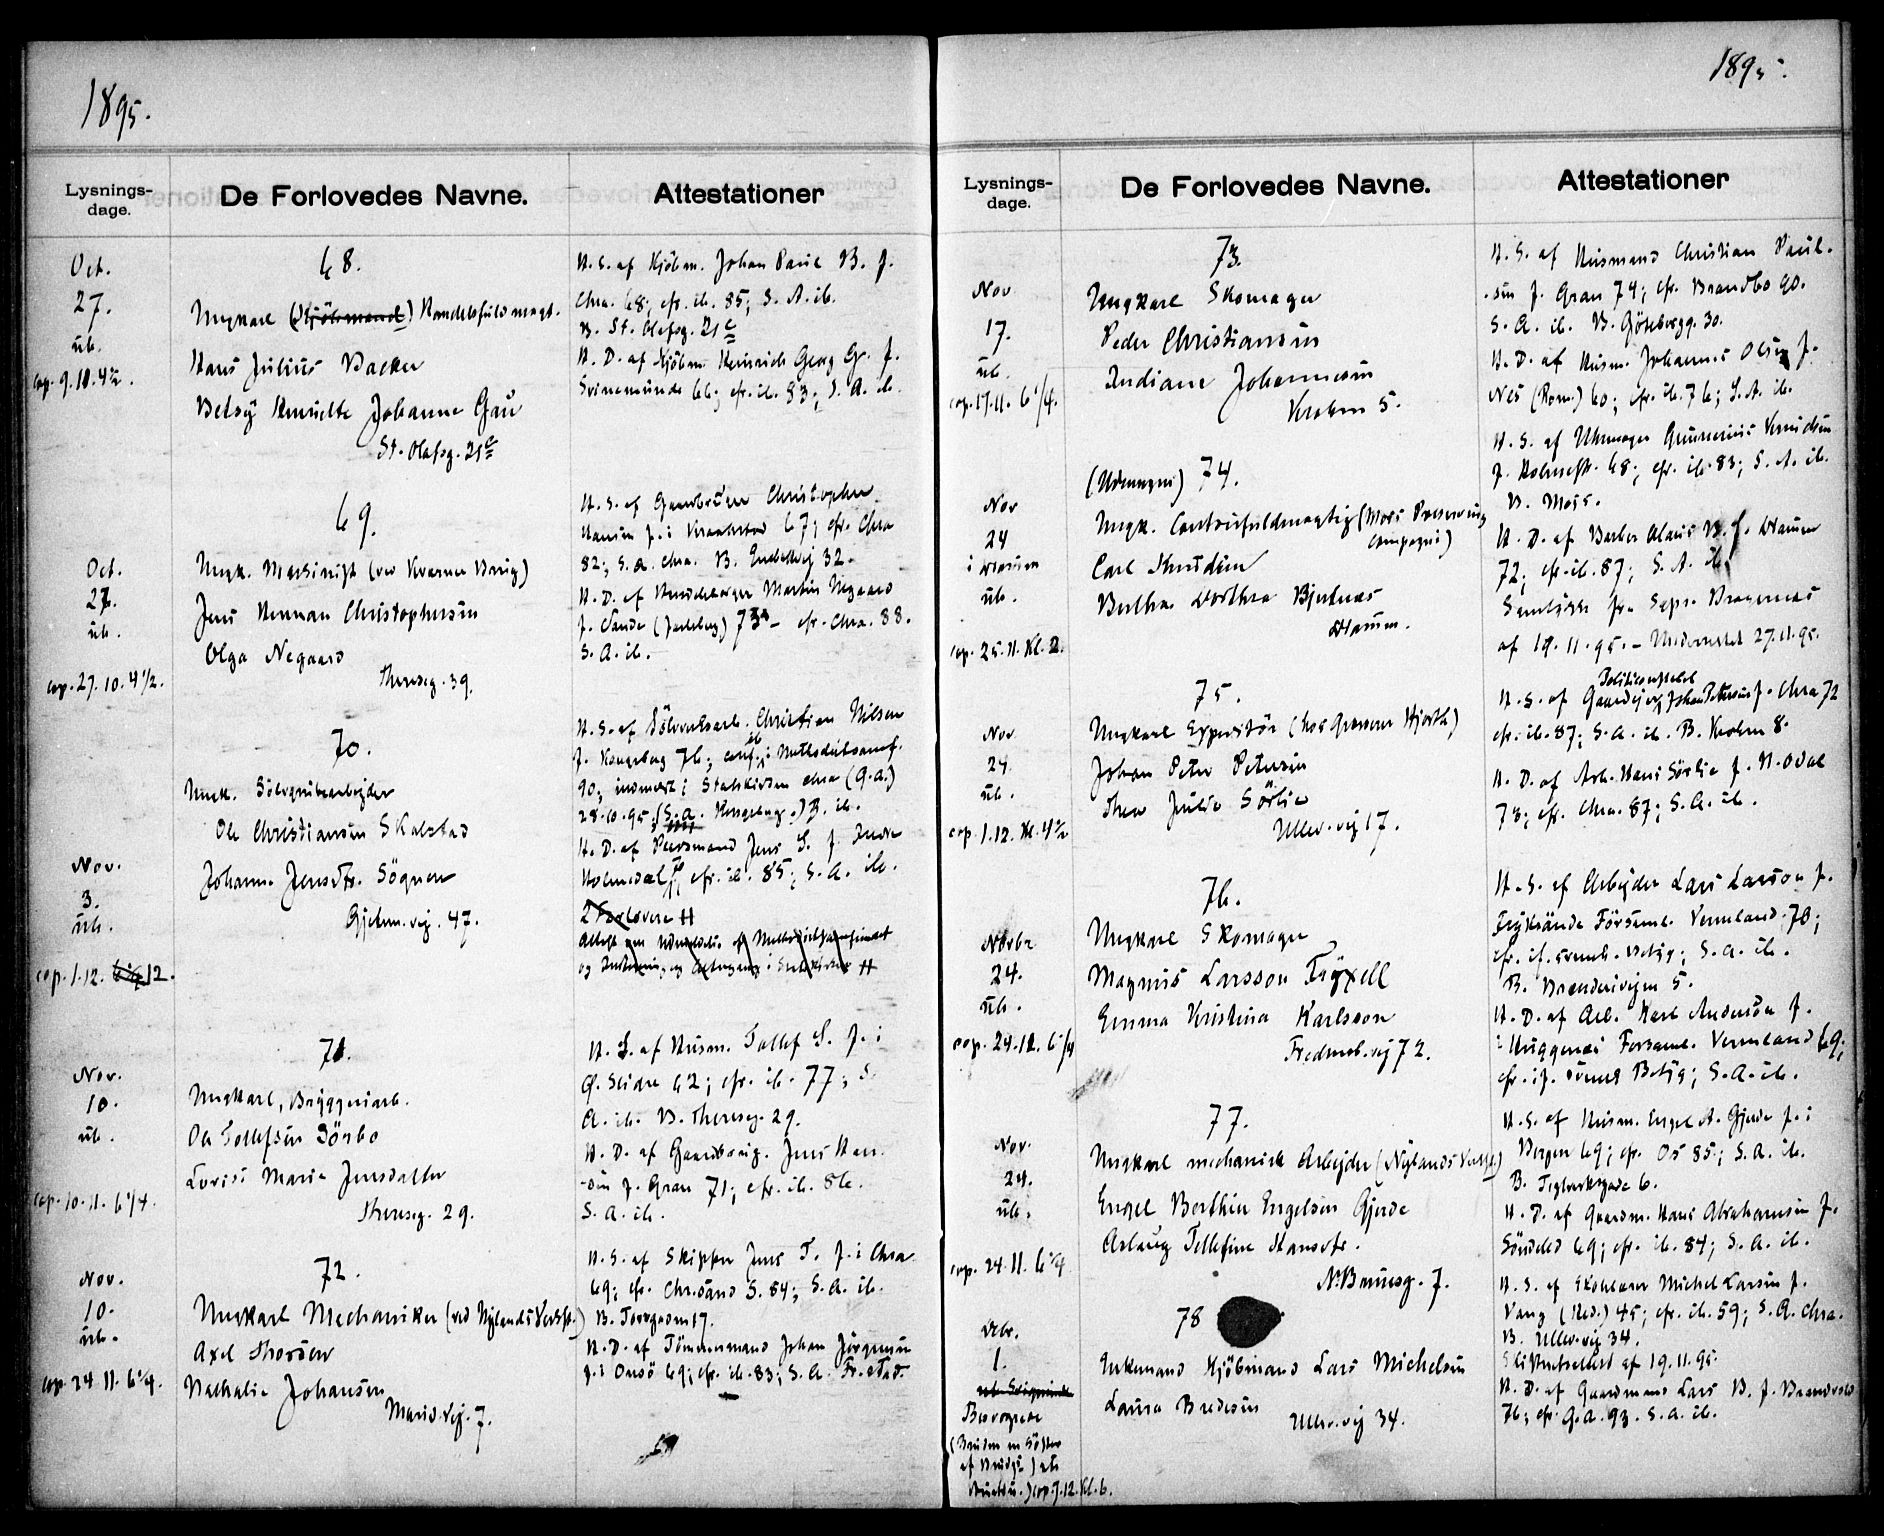 1895.
Lysnings-
dage.
De Forlovedes Navne.
Attestationer
Oct.
27.
cop. 9.10. 4½.
68.
Ungkarl (Kjöbmand) Handelsfuldmægt.
Hans Julius Backer
Betsy Henriette Johanne Gau
St. Olafsg. 21c
N. S. af Kjöbm. Johan Paul B. f.
Chra. 68; cfr. ib. 85; S. A. ib.
B. St. Olafsg. 21c
N. D. af Kjöbm. Heinrich Georg Gr. f.
Svinemünde 66; cfr. ib. 83; S. A. ib.
Oct.
27.
cop. 27.10. 4 1/2.
69.
Ungk. Maskinist (ved Kværner Brug)
Jens Herman Christophersen
Olga Negaard
Thereseg. 39.
N. S. af Gaardbruger Christopher
Hansen f. i 67; cfr. Chra
82; S. A. Chra. B. 32.
N. D. af Martin Negaard
f. Sande (Jarlsberg) 73 - cfr. Chra. 88.
S. A. ib.
Nov.
3.
cop. 1.12. 12.
70.
Ungk. Sölvgrubearbejder
Ole Christiansen Skalstad
Johanne Jensdtr. Sögnen
Gjetem.vej. 47.
N. S. af Sölvverksarb. Christian Nilsen
f. Kongsberg 76; conf. i Methodistsamf.
90; indmeldt i Statskirken Chra (G.a.)
28.10.95; (S. a. Kongsberg.) B. ib.
N. D. af Jens S. f. Indre
Holmedal; cfr. ib. 85; S. A. ib.
2 Forlovere H
Nov.
10.
cop. 10.11. 6 1/4.
71.
Ungkarl, Bryggeriarb.
Ole Tollefsen Sörbo
Lovise Marie Jensdatter
Thereseg. 29.
N. S. af Husm. Tollef S. f. i
Ø. Slidre 62; cfr. ib. 77; S.
A. ib. B. Thereseg. 29.
N. D. af Gaardbrug. Jens Han-
sen f. Gran 71; cfr. ib. 86.
S. A. ib.
Nov.
10.
cop. 24.11. 6 1/4.
72.
Ungkarl Mechaniker (ved Nylands Verkst.)
Axel Thorsen
Nathalie Johansen
Marid.vej. 7.
N. S. af Skipper Jens T. f. i Chra
69; cfr. Chrsand S. 84; S. A. ib.
B. Torvgaden 17.
N. D. af Tömmermand Johan Jörgensen
f. i Onsö 69; cfr. ib. 83; S. A. Fr.stad
1895.
Lysnings-
dage.
De Forlovedes Navne.
Attestationer
Nov
17.
cop. 17.11. 6 1/4.
73.
Ungkarl Skomager
Peder Christiansen
Indiane Johannesen
Verksgn 5.
N. S. af Husmand Christian Paul-
sen f. Gran 74; cfr. Brandbo 90.
S. A. ib. B. Göteborgg. 30.
N. D. af Husm. Johannes Olsen f.
Nes (Rom.) 60; cfr. ib. 76; S. A. ib.
Nov
24
i Drammen
cop. 25.11. Kl. 2.
(Udenmenigh.) 74.
Ungk. Contorfuldmægtig (Moss Preserving
Compagni)
Carl Knudsen
Berthe Dorthea Bjertnæs
Drammen.
N. S. af Uhrmager Knudsen
f. Holmestr. 68; cfr. ib. 83; S. A. ib.
B. Moss.
N. D. af Barber B. f. Drammen
72; cfr. ib. 87; S. A. ib.
Samtykke fra Sgpr. Bragernæs
af 19.11.95. - Underrettet 27.11.95.
Nov
24.
cop. 1.12. Kl. 4½
75.
Ungkarl Expeditör (hos Grosserer Hjorth)
Johan Peter Petersen
Thea Julie Sörlie
Ullev.vej 17.
Politikonstabel
N. S. af Gaardejer Johan Petersen f. Chra 72
cfr. ib. 87; S. A. ib. B. 8.
N. D. af Arb. Hans Sörlie f. N. Odal
73; cfr. Chra. 87; S. A. ib.
Novbr
24.
cop. 24.12. 6 1/4
76.
Ungkarl Skomager
Magnus Larsson Fryxell
Emma Kristina Karlsson
Fredensb.vej 72.
N. S. af Arbejder Lars Larsson f.
Frykände Församl. Vermland 70;
cfr. if. svensk Betyg; S. A. ib.
B. 5.
N. D. af Arb. Karl Anderson f.
i Huggenæs Forsaml. Vermland 69;
cfr. if. svensk Betyg; S. A. ib.
Nov.
24.
cop. 24.11. 6 1/4
77.
Ungkarl mechanisk Arbejder (Nylands Verkst.)
Engel Berthin Engelsen Gjerde
Aslaug Tellefine Hansdtr.
N. Bruusg. 7.
N. S. af Husm. Engel A. Gjerde f. i
Bergen 69; cfr. Os 85; S. A. ib.
B. Teglverksgade 6.
N. D. af Gaardm. Hans Abrahamsen f.
Söndeled 69; cfr. ib. 84; S. A. ib.
Dcbr.
1.
(Bruden en Söster
cop. 7.12. Kl. 6.
78
Enkemand Kjöbmand Lars Michelsen
Laura Bredesen
Ullev.vej 34.
N. S. af Skolelærer Michel Larsen f.
Vang (Hed.) 45; cfr. ib. 59; S. A. Chra.
B. Ullev.vej 34.
Skifteattest af 19.11.95.
N. D. af Gaardmand Lars B. f.
76; cfr. G. A. 93. S. A. ib.